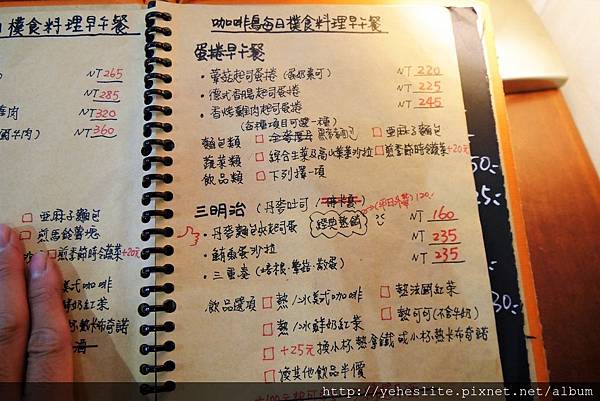 日樸食料理早午餐
NT 265
NT 285
NT 320
NT 360
亞麻子麵包
煎馬鈴薯塊
煎季節時令蔬菜+20元
美式咖啡
鮮奶紅茶
咖啡鳥每日樸食料理早午餐
蛋捲早午餐
・蘑菇起司蛋捲 (蛋奶素可) NT 220
・德式香腸起司蛋捲 NT 225
・香烤雞肉起司蛋捲 NT 245
(各種項目可選一種)
麵包類 □ □ 亞麻子麵包
蔬菜類 □ 綜合生菜及高山葉菜沙拉 □ 煎季節時令蔬菜+20元
飲品類 □ 下列擇一項
三明治 (丹麥吐司
經典熱銷
・丹麥麵包水起司蛋 NT 160
・鮪魚蛋沙拉 NT 235
・三重奏 (培根・蘑菇・散蛋) NT 235
飲品選項 □ 熱/冰美式咖啡 □ 熱法國紅茶
□ 熱/冰鮮奶紅茶 □ 熱可可(不含牛奶)
□ +25元 換小杯熱拿鐵 或小杯熱卡布奇諾
□ 換其他飲品半價
http://yeheslite.pixnet.net/album